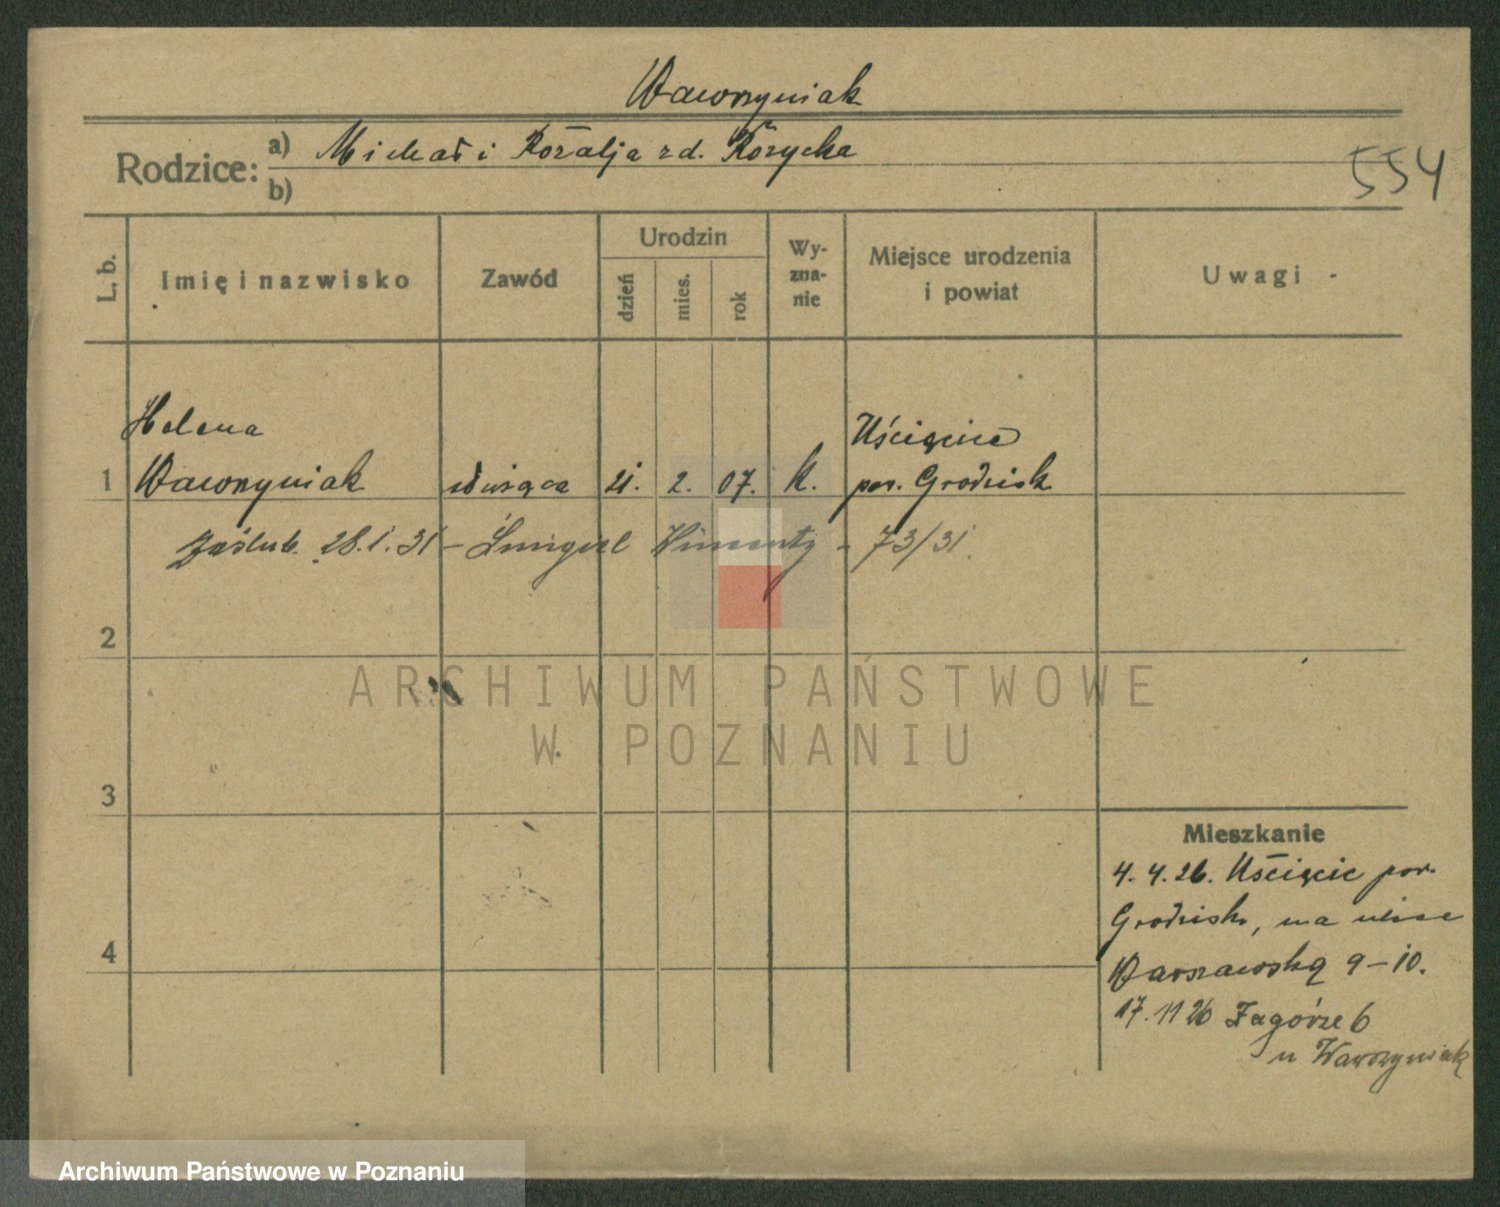 Wawrzyniak
Rodzice: a) Michał i Rozalja zd. Kozycka
b)
554
L. b.
Imię i nazwisko
Zawód
Urodzin
dzień
mies.
rok
Wy-
zna-
nie
Miejsce urodzenia
i powiat
Uwagi
Helena
Uścięcice
1 Wawrzyniak służąca 21. 2. 07. k. pow. Grodzisk
Zaślub. 28.1.31 – Śmigiel – 73/31
2
3
4
Mieszkanie
4. 4. 26. Uścięcic pow.
Grodzisk, na ulicę
Warszawską 9–10.
17. 11 26 Zagórze 6
u Wawrzyniak
ARCHIWUM PAŃSTWOWE
W POZNANIU
Archiwum Państwowe w Poznaniu